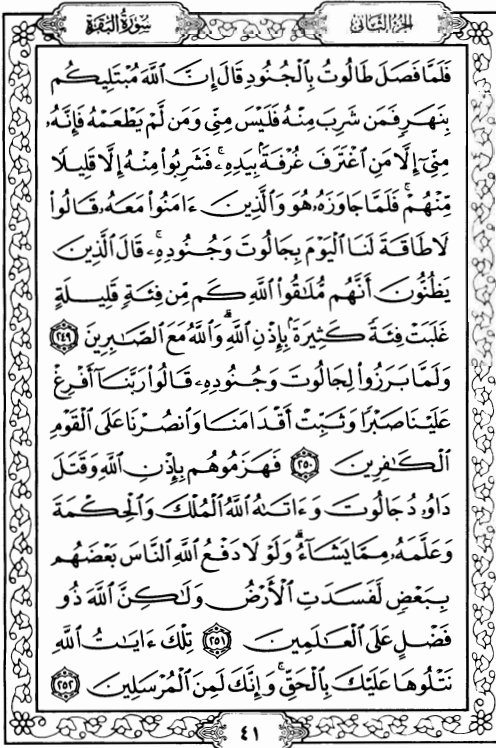 الجزء الثاني
سورة البقرة
فَلَمَّا فَصَلَ طَالُوتُ بِٱلْجُنُودِ قَالَ إِنَّ ٱللَّهَ مُبْتَلِيكُم
بِنَهَرٍ فَمَن شَرِبَ مِنْهُ فَلَيْسَ مِنِّى وَمَن لَّمْ يَطْعَمْهُ فَإِنَّهُۥ
مِنِّىٓ إِلَّا مَنِ ٱغْتَرَفَ غُرْفَةًۢ بِيَدِهِۦ ۚ فَشَرِبُوا۟ مِنْهُ إِلَّا قَلِيلًا
مِّنْهُمْ ۚ فَلَمَّا جَاوَزَهُۥ هُوَ وَٱلَّذِينَ ءَامَنُوا۟ مَعَهُۥ قَالُوا۟
لَا طَاقَةَ لَنَا ٱلْيَوْمَ بِجَالُوتَ وَجُنُودِهِۦ ۚ قَالَ ٱلَّذِينَ
يَظُنُّونَ أَنَّهُم مُّلَٰقُوا۟ ٱللَّهِ كَم مِّن فِئَةٍ قَلِيلَةٍ
غَلَبَتْ فِئَةً كَثِيرَةًۢ بِإِذْنِ ٱللَّهِ ۗ وَٱللَّهُ مَعَ ٱلصَّٰبِرِينَ ٢٤٩
وَلَمَّا بَرَزُوا۟ لِجَالُوتَ وَجُنُودِهِۦ قَالُوا۟ رَبَّنَآ أَفْرِغْ
عَلَيْنَا صَبْرًا وَثَبِّتْ أَقْدَامَنَا وَٱنصُرْنَا عَلَى ٱلْقَوْمِ
ٱلْكَٰفِرِينَ ٢٥٠ فَهَزَمُوهُم بِإِذْنِ ٱللَّهِ وَقَتَلَ
دَاوُۥدُ جَالُوتَ وَءَاتَىٰهُ ٱللَّهُ ٱلْمُلْكَ وَٱلْحِكْمَةَ
وَعَلَّمَهُۥ مِمَّا يَشَآءُ ۗ وَلَوْلَا دَفْعُ ٱللَّهِ ٱلنَّاسَ بَعْضَهُم
بِبَعْضٍ لَّفَسَدَتِ ٱلْأَرْضُ وَلَٰكِنَّ ٱللَّهَ ذُو
فَضْلٍ عَلَى ٱلْعَٰلَمِينَ ٢٥١ تِلْكَ ءَايَٰتُ ٱللَّهِ
نَتْلُوهَا عَلَيْكَ بِٱلْحَقِّ ۚ وَإِنَّكَ لَمِنَ ٱلْمُرْسَلِينَ ٢٥٢
٤١